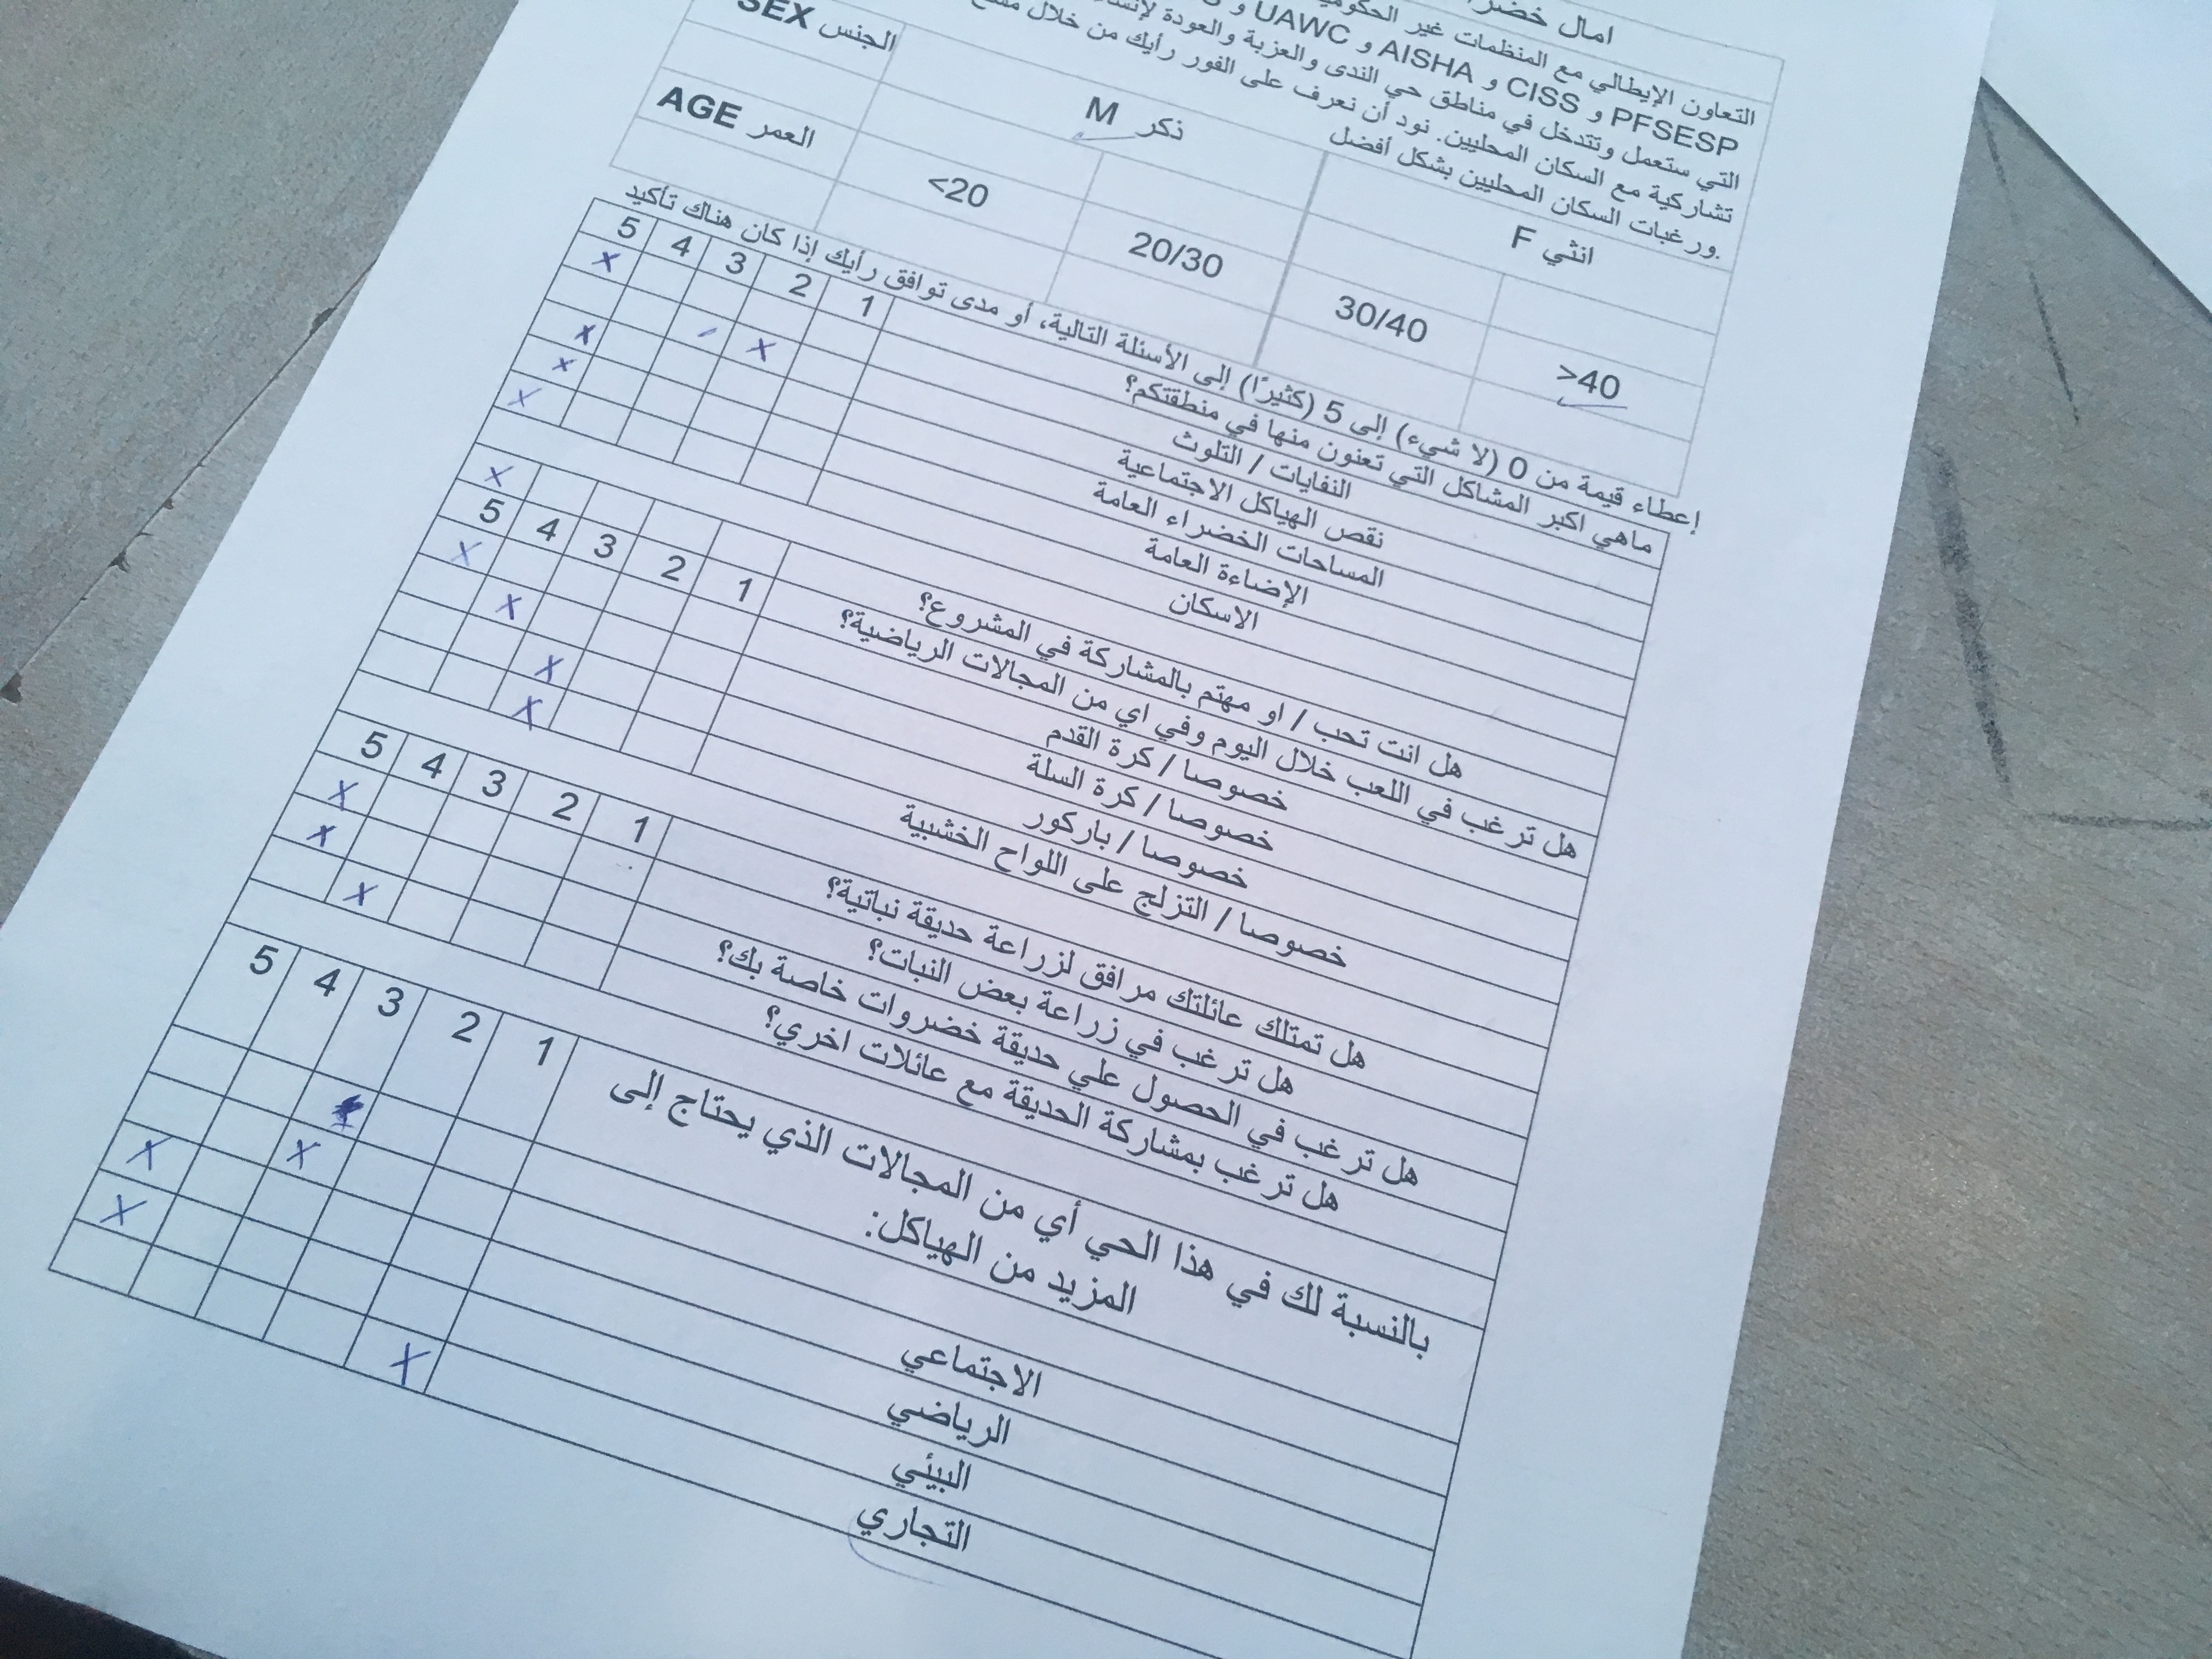 امال
التعاون الإيطالي مع المنظمات غير
PFSESP و CISS و AISHA و UAWC و
التي ستعمل وتتدخل في مناطق حي الندى والعزبة والعودة
تشاركية مع السكان المحليين. نود أن نعرف على الفور رأيك من خلال
ورغبات السكان المحليين بشكل أفضل.
SEX الجنس
ذكر M
انثي F
AGE العمر
<20
20/30
30/40
>40
إعطاء قيمة من 0 (لا شيء) إلى 5 (كثيرًا) إلى الأسئلة التالية، أو مدى توافق رأيك إذا كان هناك تأكيد
ماهي اكبر المشاكل التي تعنون منها في منطقتكم؟ 1 2 3 4 5
النفايات / التلوث x
نقص الهياكل الاجتماعية x
المساحات الخضراء العامة x
الإضاءة العامة x
الاسكان x
هل انت تحب / او مهتم بالمشاركة في المشروع؟ x
هل ترغب في اللعب خلال اليوم وفي اي من المجالات الرياضية؟ 1 2 3 4 5
خصوصا / كرة القدم x
خصوصا / كرة السلة x
خصوصا / باركور x
خصوصا / التزلج على اللواح الخشبية x
هل تمتلك عائلتك مرافق لزراعة حديقة نباتية؟ 1 2 3 4 5
هل ترغب في زراعة بعض النبات؟ x
هل ترغب في الحصول علي حديقة خضروات خاصة بك؟ x
هل ترغب بمشاركة الحديقة مع عائلات اخري؟ x
بالنسبة لك في هذا الحي أي من المجالات الذي يحتاج إلى 1 2 3 4 5
المزيد من الهياكل:
الاجتماعي x
الرياضي x
البيئي x
التجاري x